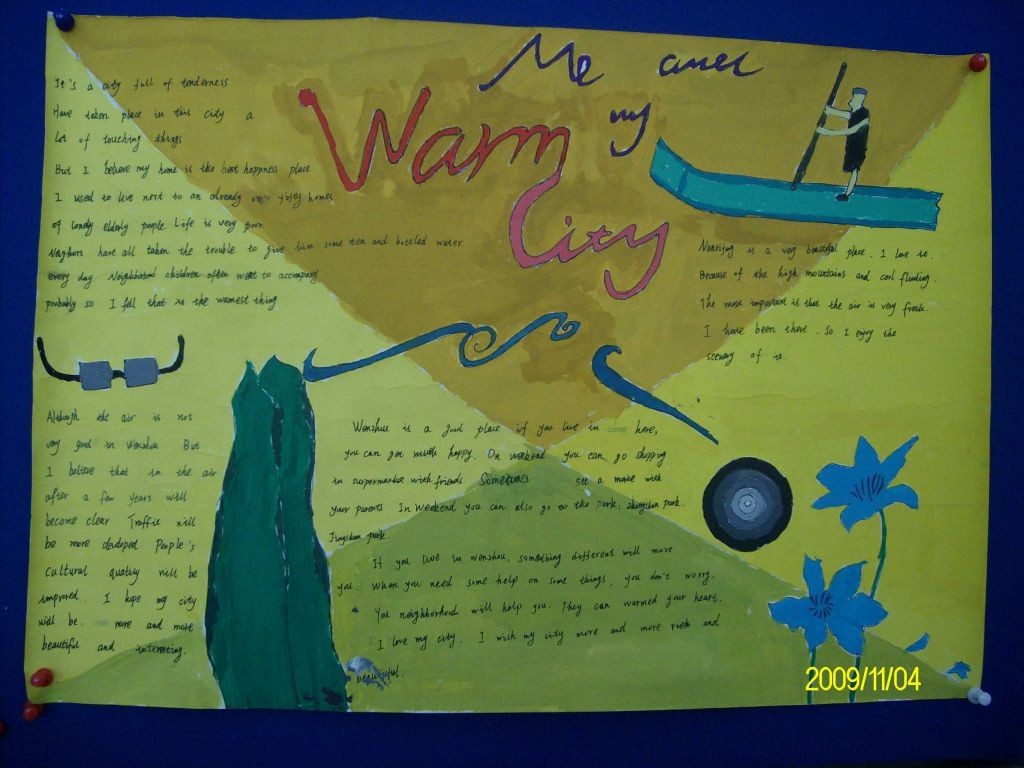 Me and my
Warm City
It's a city full of tenderness
Have taken place in this city a
lot of touching things
But I believe my home is the best happness place.
I used to live next to an already over homes
of lonely elderly people. Life is very poor.
Neighbors have all taken the trouble to give him some tea and bottled water
every day Neighborhood children often went to accompany
probably so I fell that is the warmest thing
Nanxijiang is a very beautiful place. I love it.
Because of the high mountains and cool flooding.
The most important is that the air is very fresh.
I have been there. So I enjoy the
scenery of it.
Although the air is not
very good in Wenzhou But
I believe that in the air
after a few years will
become clear Traffic will
be more developed People's
cultural quality will be
improved. I hope my city
will be. more and more
beautiful and interesting.
Wenzhou is a good place if you live in here,
you can get much happy. On weekend you can go shopping
in supermarket with friends Sometimes see a movie with
your parents In weekend you can also go to the park: zhongshan park.
Jingshan park.
If you live in wenzhou, something different will move
you. When you need some help on some things, you don't worry.
You neighborhood will help you. They can warmed your heart.
I love my city. I wish my city more and more rich and
beautiful.
2009/11/04